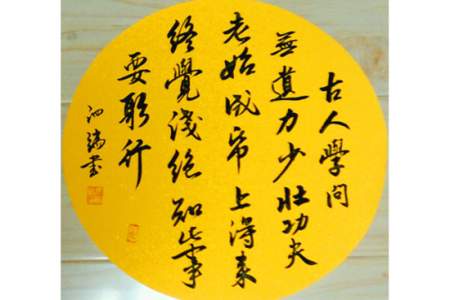 古人學問
無遺力少壯功夫
老始成帋上得來
終覺淺絕知此事
要躬行
書